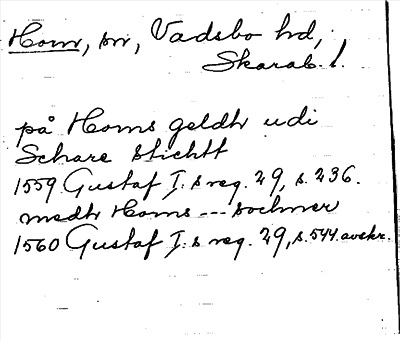 Horn, sn, Vadsbo hd,
Skarab. l.
på Horns geldh udi
Schare Stichtt
1559 Gustaf I:s reg. 29, s. 236.
medh Horns --- sochner
1560 Gustaf I:s reg. 29, s. 544. avskr.